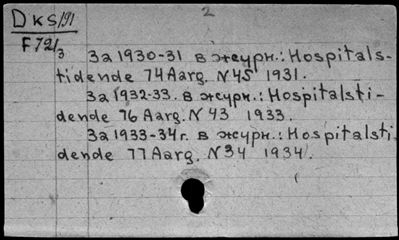 2
Dks/191
F72/3
За 1930-31 в журн.: Hospitals-
tidende 74 Aarg. N 45 1931.
За 1932-33. в журн.: Hospitalsti-
dende 76 Aarg. N 43 1933.
За 1933-34г. в журн.: Hospitalsti
dende 77 Aarg. N 34 1934.